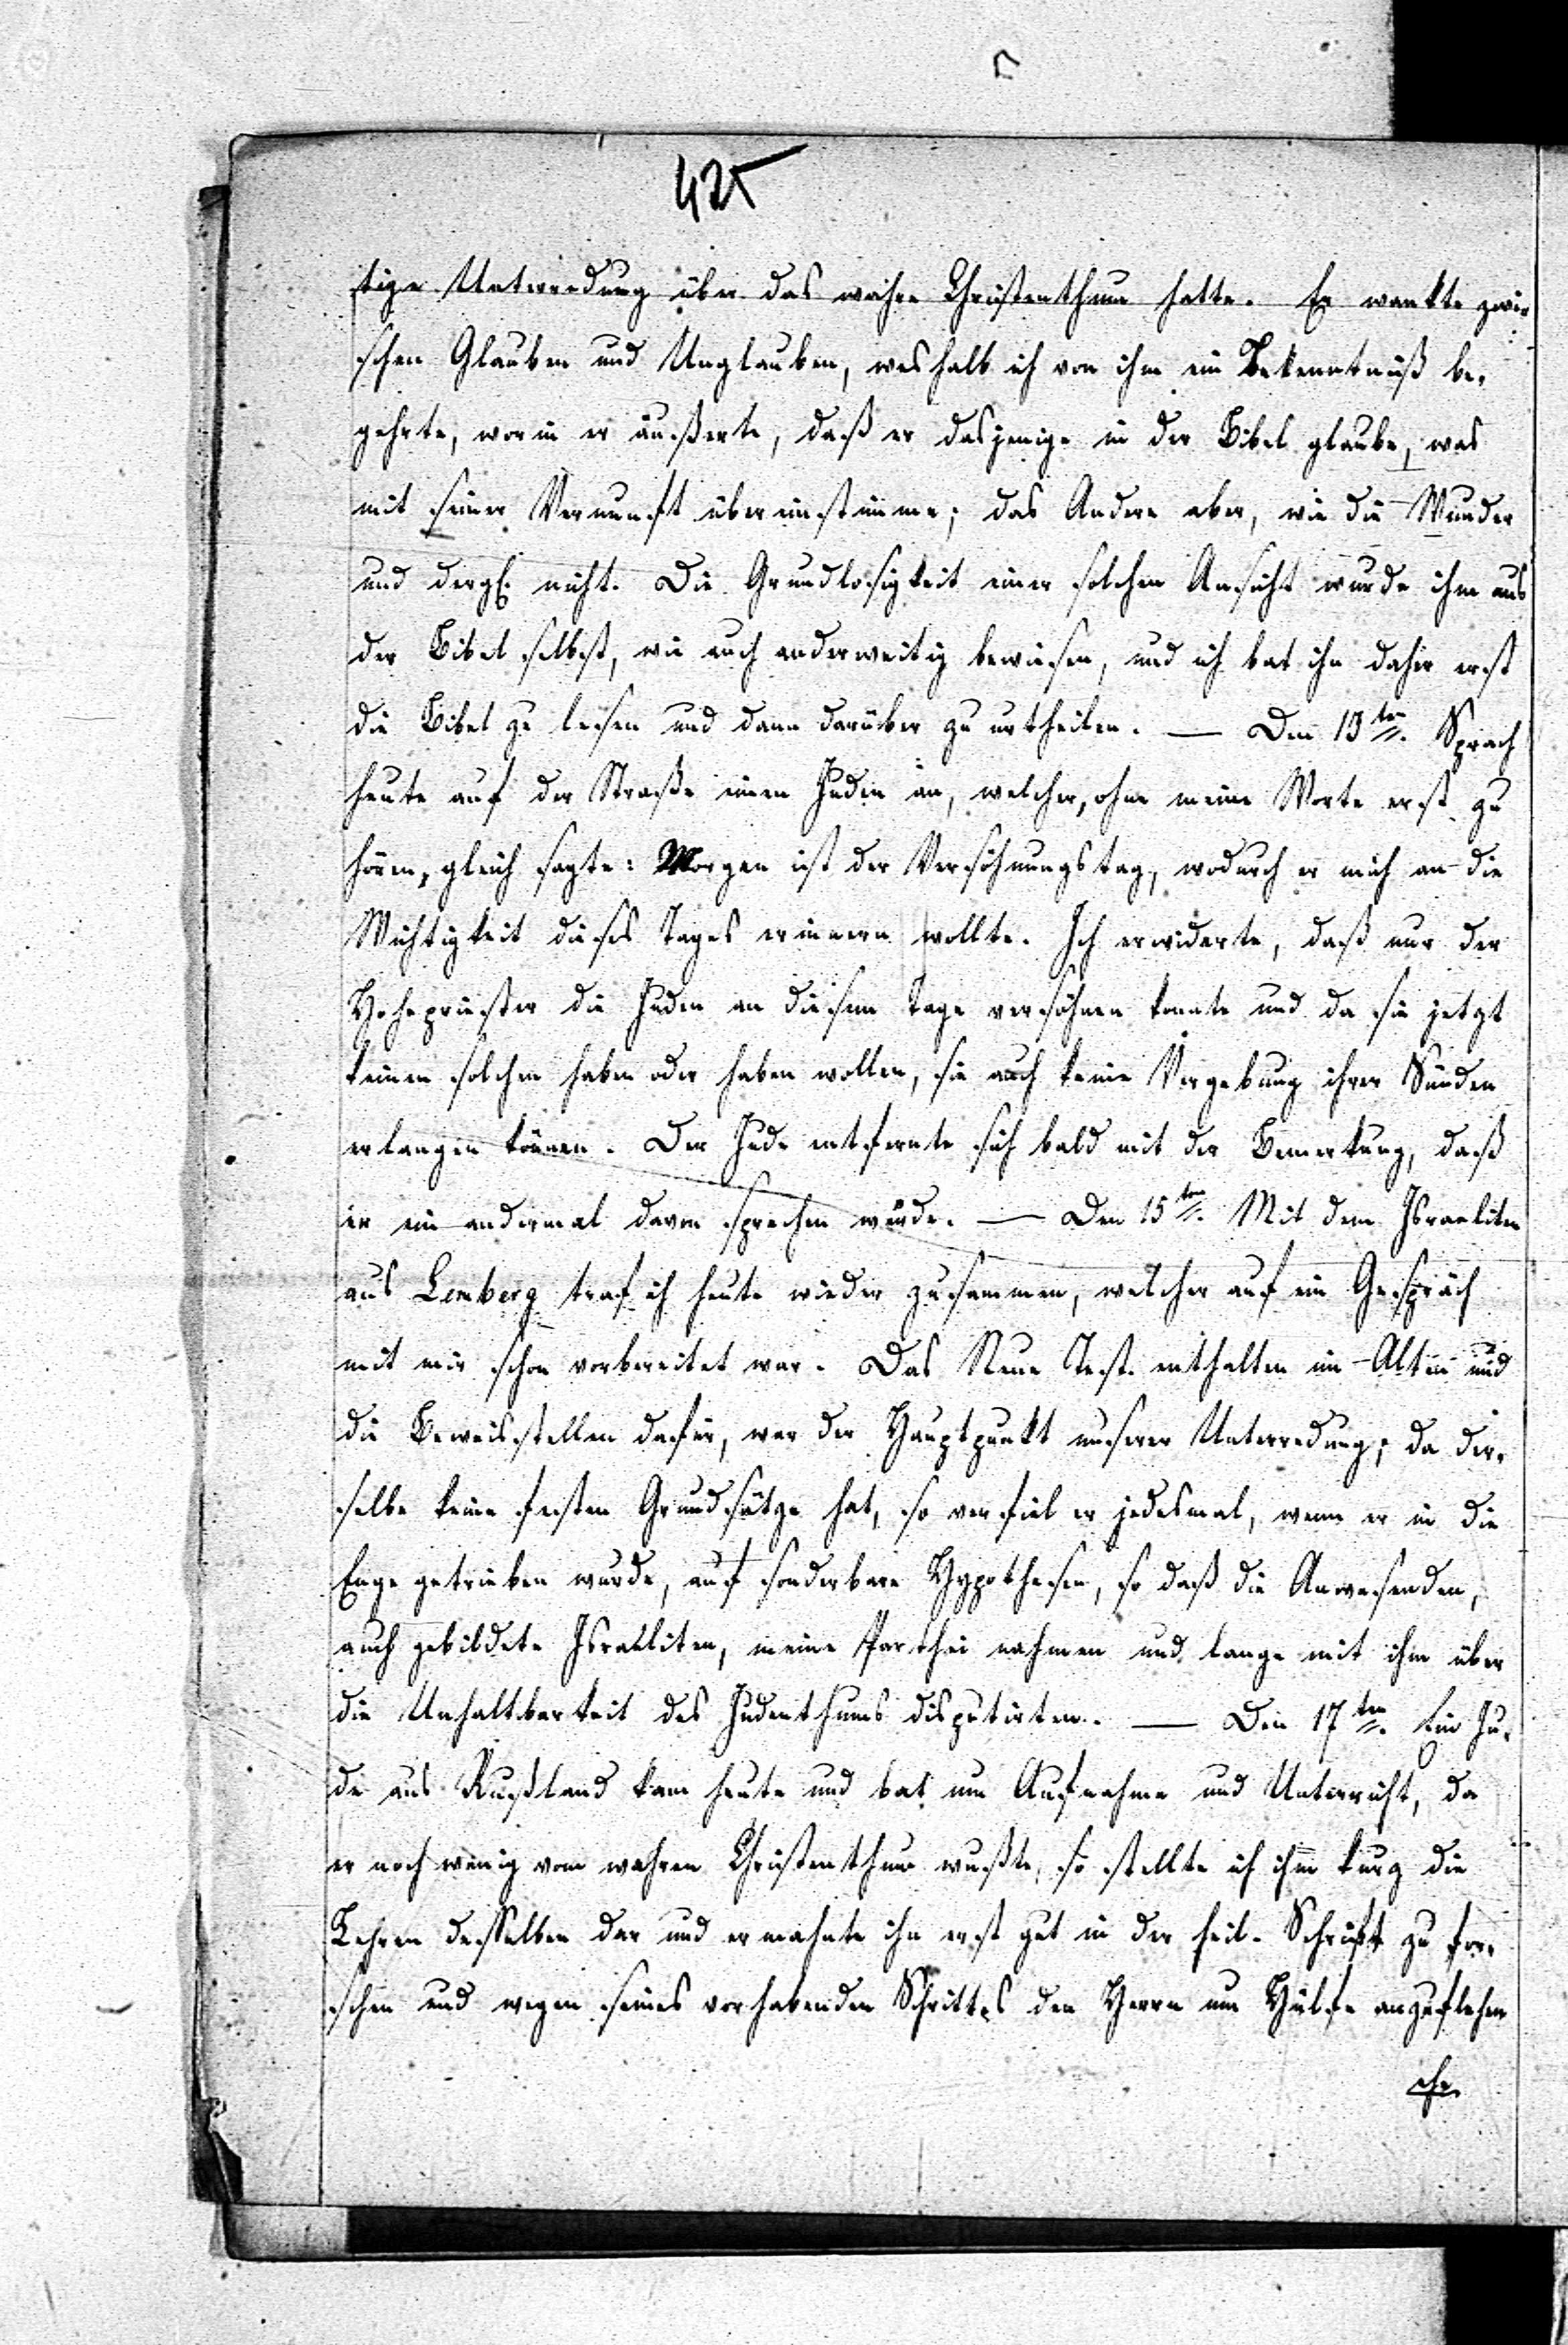 425
stige Unterredung über das wahre Christenthum hatte. Er wankte zwi-
schen Glauben und Unglauben, weshalb ich von ihm ein Bekenntniß be-
gehrte, worin er äußerte, daß er dasjenige in der Bibel glaube, was
mit seiner Vernunft übereinstimme; das Andere aber, wie die Wunder
und dergl. nicht. Die Grundlosigkeit einer solchen Ansicht wurde ihm aus
der Bibel selbst, wie auch anderweitig bewiesen, und ich bat ihn daher erst
die Bibel zu lesen und dann darüber zu urtheilen. — Den 13ten. Sprach
heute auf der Straße einen Juden an, welcher, ohne meine Worte erst zu
hören, gleich sagte: Morgen ist der Versöhnungstag, wodurch er mich an die
Wichtigkeit dieses Tages erinnern wollte. Ich erwiderte, daß nur der
Hohepriester die Juden an diesem Tage versöhnen konnte und da sie jetzt
keinen solchen haben oder haben wollen, sie auch keine Vergebung ihrer Sünden
erlangen können. Der Jude entfernte sich bald mit der Bemerkung, daß
er ein andermal davon sprechen würde. — Den 15ten. Mit dem Israeliten
aus Lemberg traf ich heute wieder zusammen, welcher auf ein Gespräch
mit mir schon vorbereitet war. Das Neue Test. enthalten im Alten und
die Beweisstellen dafür, war der Hauptpunkt unserer Unterredung; da der-
selbe keine festen Grundsätze hat, so verfiel er jedesmal, wenn er in die
Enge getrieben wurde, auf sonderbare Hypothesen, so daß die Anwesenden,
auch gebildete Israeliten, meine Parthei nahmen und lange mit ihm über
die Unhaltbarkeit des Judenthums disputirten. — Den 17ten. Ein Ju-
de aus Rußland kam heute und bat um Aufnahme und Unterricht, da
er noch wenig vom wahren Christenthum wußte, so stellte ich ihm kurz die
Lehren desselben dar und ermahnte ihn erst gut in der heil. Schrift zu for-
schen und wegen seines vorhabenden Schrittes den Herrn um Hülfe anzuflehen